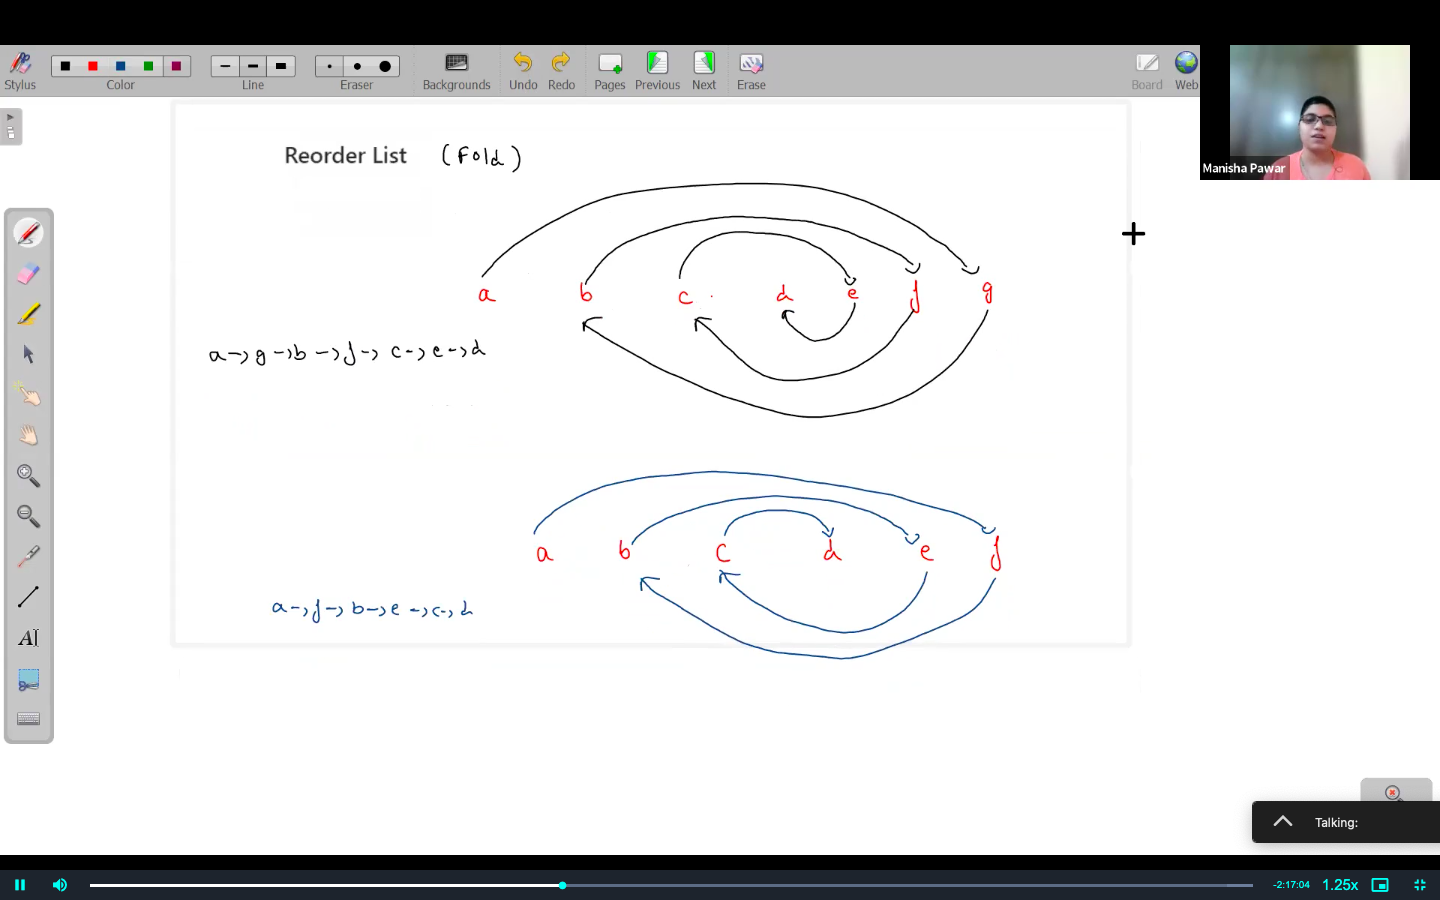 Stylus Color Line Eraser Backgrounds Undo Redo Pages Previous Next Erase Board Web
Manisha Pawar
Reorder List (Fold)
a b c d e f g
a -> g -> b -> f -> c -> e -> d
a b c d e f
a -> f -> b -> e -> c -> d
AI
Talking:
-2:17:04 1.25x